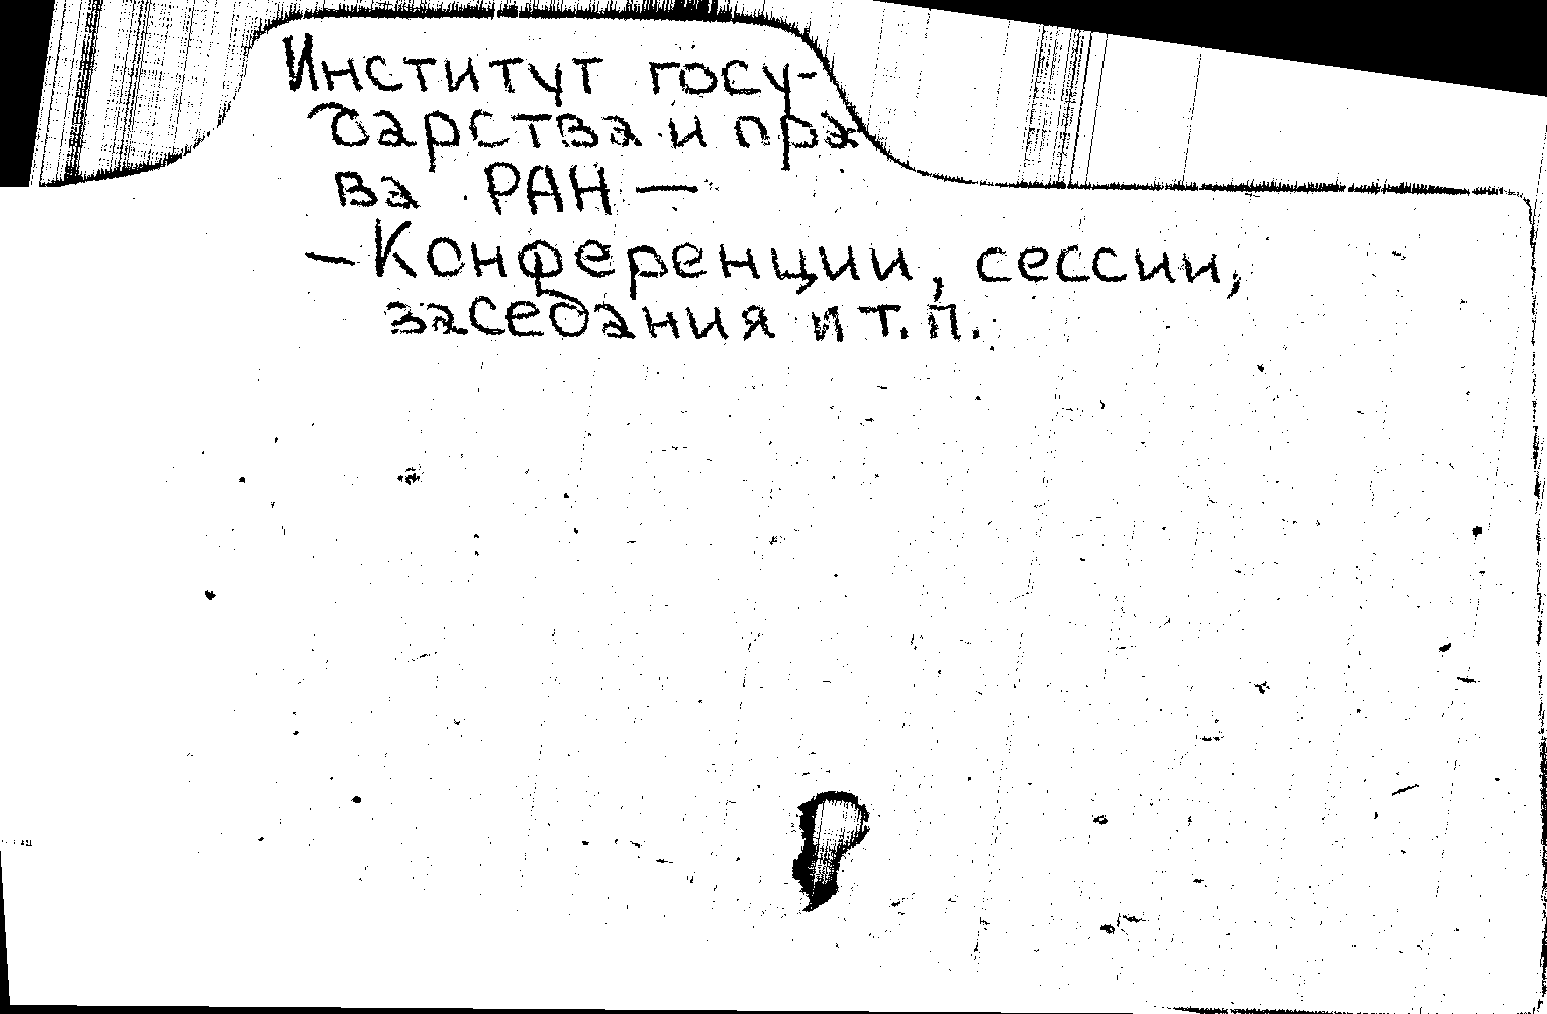 Институт госу-
дарства и пра
ва РАН —
— Конференции, сессии,
заседания и т. п.